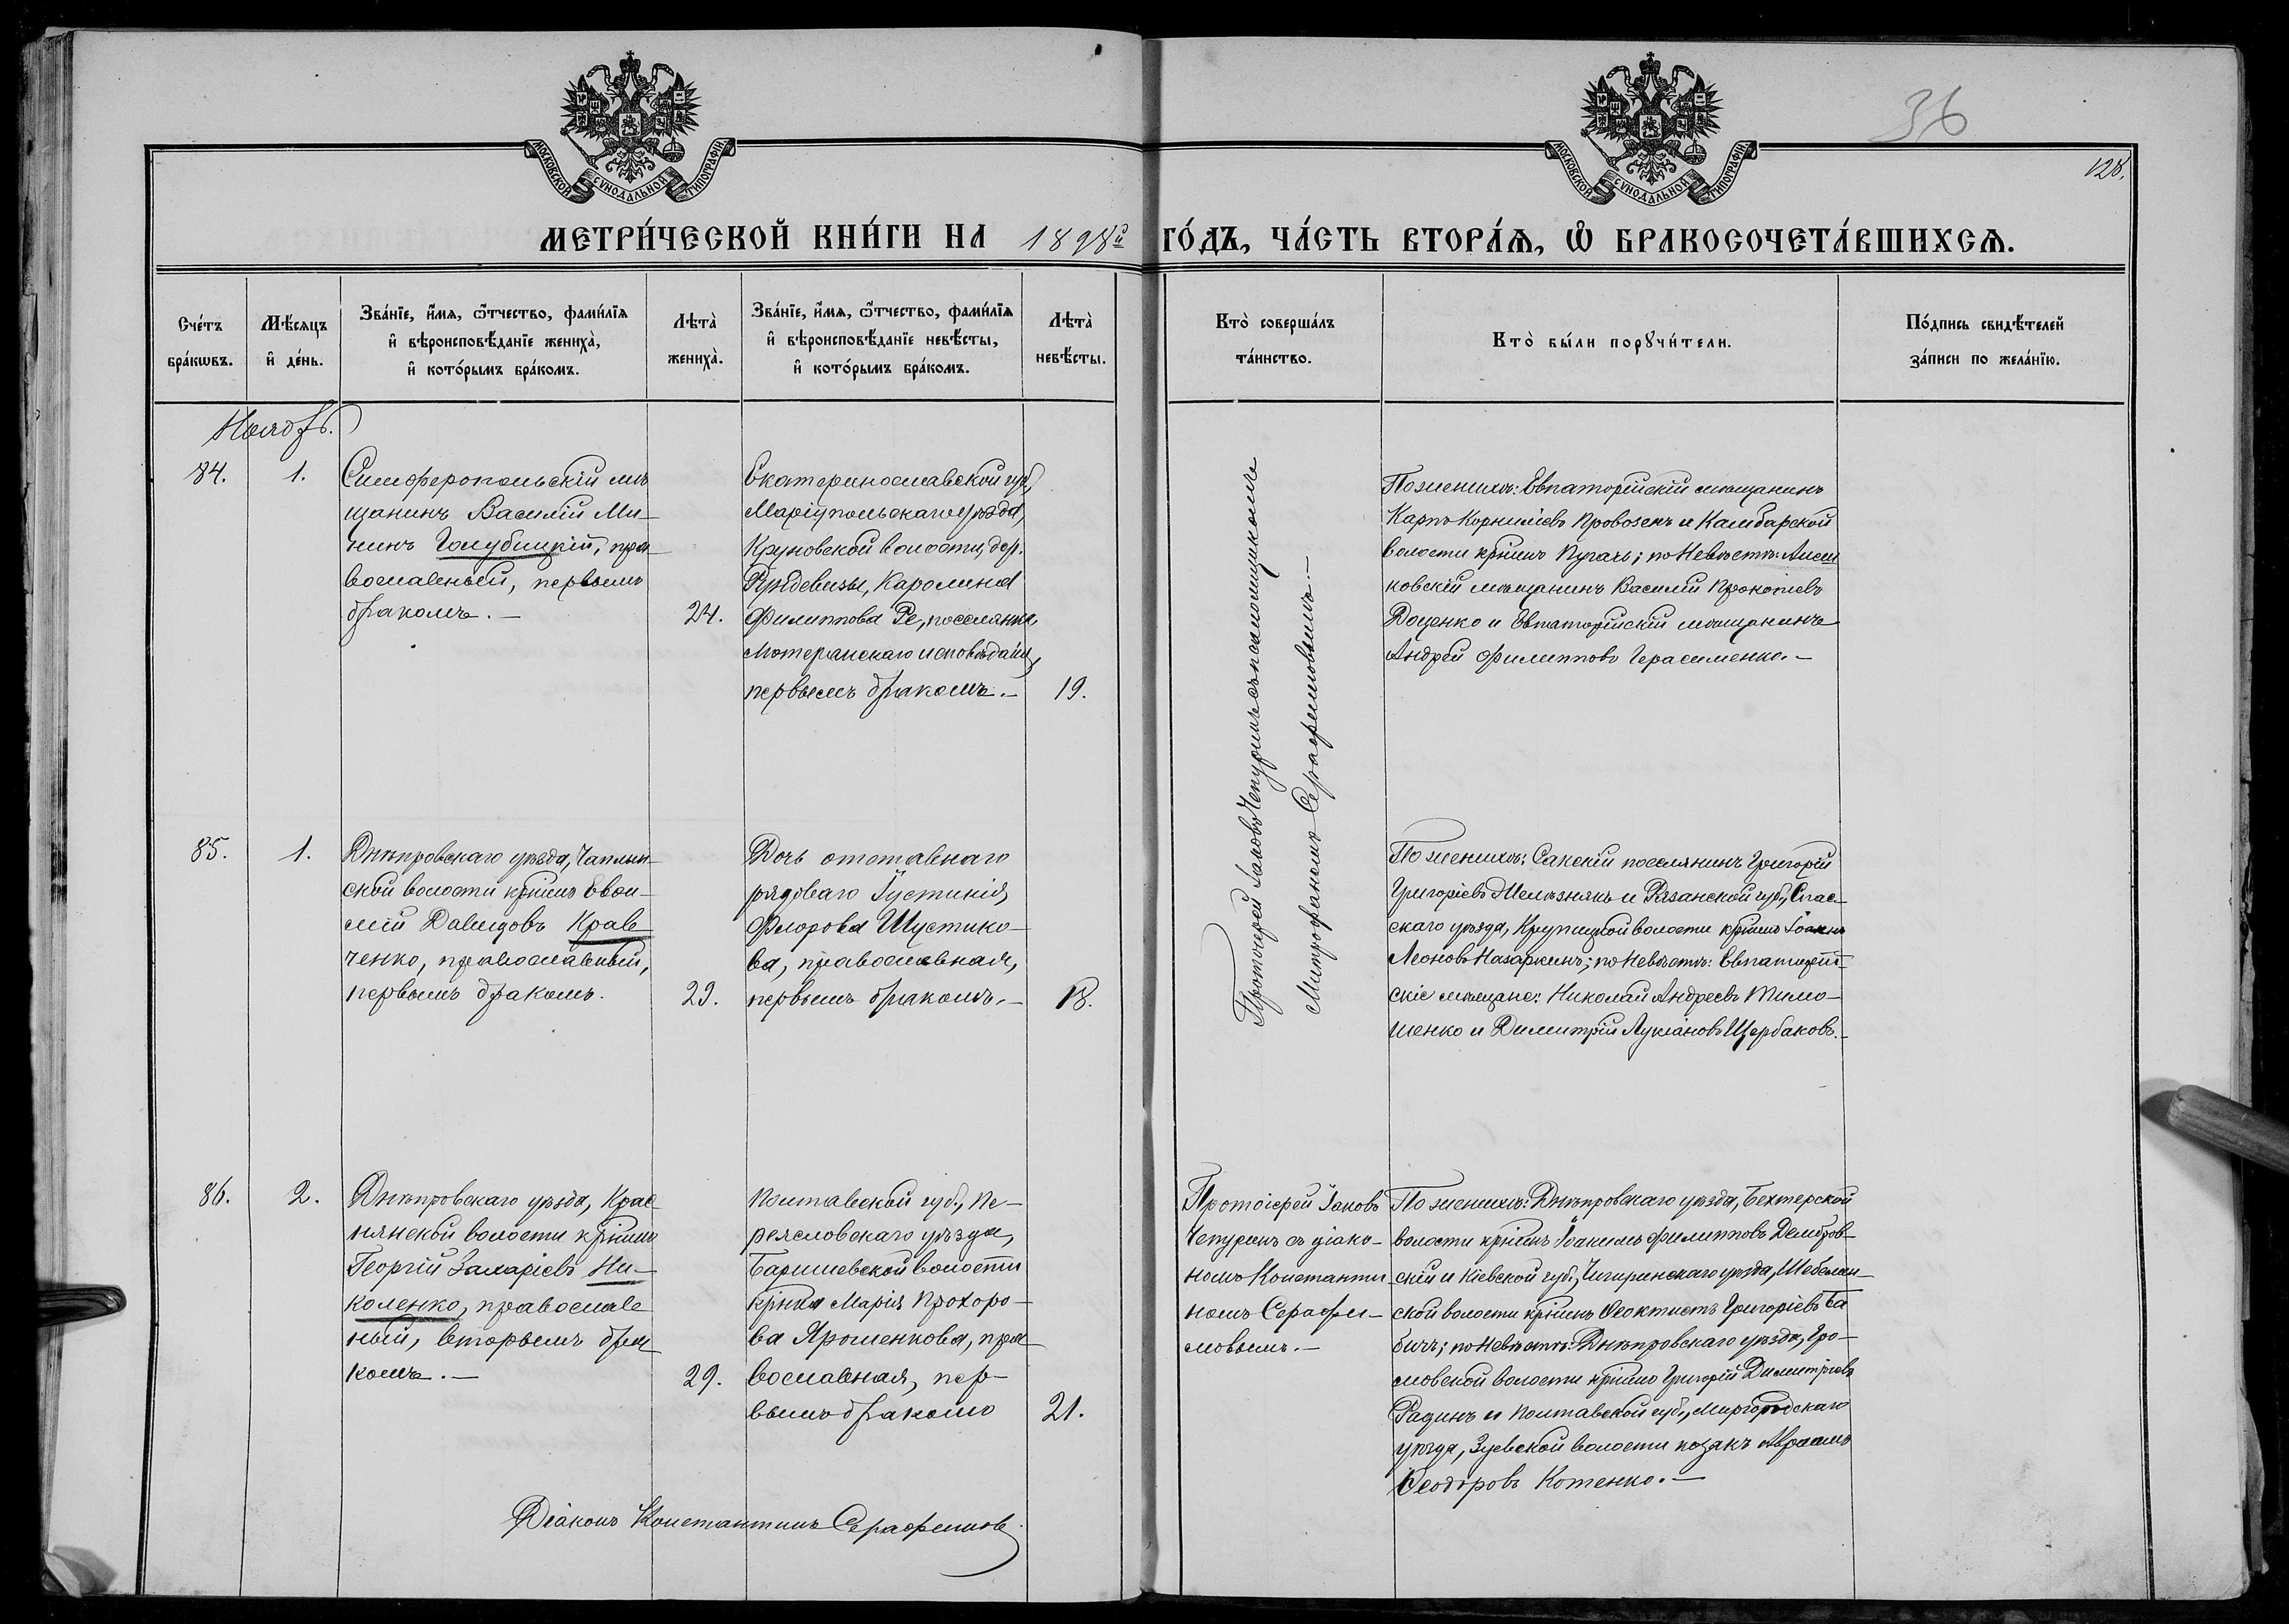 МОСКОВСКОЙ СѴНОДАЛЬНОЙ ТИПОГРАФІИ
МОСКОВСКОЙ СѴНОДАЛЬНОЙ ТИПОГРАФІИ
36
128.
МЕТРИ́ЧЕСКОЙ КНИ́ГИ НА 1898й ГО́ДЪ, ЧА́СТЬ ВТОРА́Ѧ, Ѿ БРАКОСОЧЕТА́ВШИХСѦ.
Сче́тъ
бра́кѡвъ.
Мѣ́сѧцъ
и҆ де́нь.
Зва́нїе, и҆́мѧ, ѻ҆́тчество, фами́лїѧ
и҆ вѣроисповѣ́данїе жениха̀,
и҆ кото́рымъ бра́комъ.
Лѣта̀
жениха̀.
Зва́нїе, и҆́мѧ, ѻ҆́тчество, фами́лїѧ
и҆ вѣроисповѣ́данїе невѣ́сты,
и҆ кото́рымъ бра́комъ.
Лѣта̀
невѣ́сты.
Кто̀ соверша́лъ
та́инство.
Кто̀ бы́ли порꙋчи́тели.
По́дпись свидѣ́телей
за́писи по жела́нїю.
Ноябрь.
84.
1.
Симферопольскій мѣ
щанинъ Василій Ми-
нинъ Голубицкій, пра
вославный, первымъ
бракомъ.-
24.
Екатеринославской губ,
Маріупольскаго уѣзда,
волости, дер.
Каролина
Филиппова Ре, поселянка,
лютеранскаго исповѣданія,
первымъ бракомъ.-
19.
Протоіерей Іаковъ Чепуринъ съ псаломщикомъ
Митрофаномъ Серафимовымъ.-
По женихѣ: Евпаторійскій мѣщанинъ
Карпъ Корниліевъ Провозенъ и Камбарской
волости кр̃нинъ Пугачъ; по Невѣстѣ: Алеш
ковскій мѣщанинъ Василій Прокопіевъ
Доценко и Евпаторійскій мѣщанинъ
Андрей Филипповъ Герасименко.-
85.
1.
Днѣпровскаго уѣзда, Чаплын-
ской волости кр̃нинъ Евѳи-
мій Давидовъ Крав
ченко, православный,
первымъ бракомъ.
23.
Дочь отставнаго
рядоваго Іустинія
Флорова Шустико-
ва, православная,
первымъ бракомъ.-
18.
По женихѣ: Сакскій поселянинъ Григорій
Григоріевъ Мельзнякъ и Рязанской губ., Спас-
скаго уѣзда, Крутицкой волости кр̃нинъ Іоаннъ
Леоновъ Назаркинъ; по Невѣстѣ: Евпаторій-
скіе мѣщане: Николай Андреевъ Тимо-
шенко и Димитрій Лукіановъ Щербаковъ.-
86.
2.
Днѣпровскаго уѣзда, Крас-
нянской волости кр̃нинъ
Георгій Захаріевъ Ни-
коленко, православ
ный, вторымъ бра
комъ.-
29.
Полтавской губ., Пе-
реясловскаго уѣзда,
Барышевской волости
кр̃нка Марія Прохоро-
ва Ярошенкова, пра
вославная, пер-
вымъ бракомъ
21.
Протоіерей Іаковъ
Чепуринъ съ діако-
номъ Константи-
номъ Серафи-
мовымъ.-
По женихѣ: Днѣпровскаго уѣзда, Бехтерской
волости кр̃нинъ Іоакимъ Филипповъ Дембров-
скій и Кіевской губ., Чигиринскаго уѣзда, Шебелан-
ской волости кр̃нинъ Ѳеоктистъ Григоріевъ Ба
бичъ; по Невѣстѣ: Днѣпровскаго уѣзда, Гро-
мовской волости кр̃нинъ Григорій Димитріевъ
Радинъ и Полтавской губ., Миргородскаго
уѣзда, Зуевской волости козакъ Авраамъ
Ѳеодоровъ Котенко.-
Діаконъ Константинъ Серафимовъ